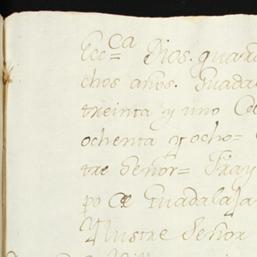 Ecc=ca Dios. guard
chos años. Guada
treinta y uno de
ochenta y ocho=
tre Señor= Fray
po de Guadalaja
Yllustre Señor